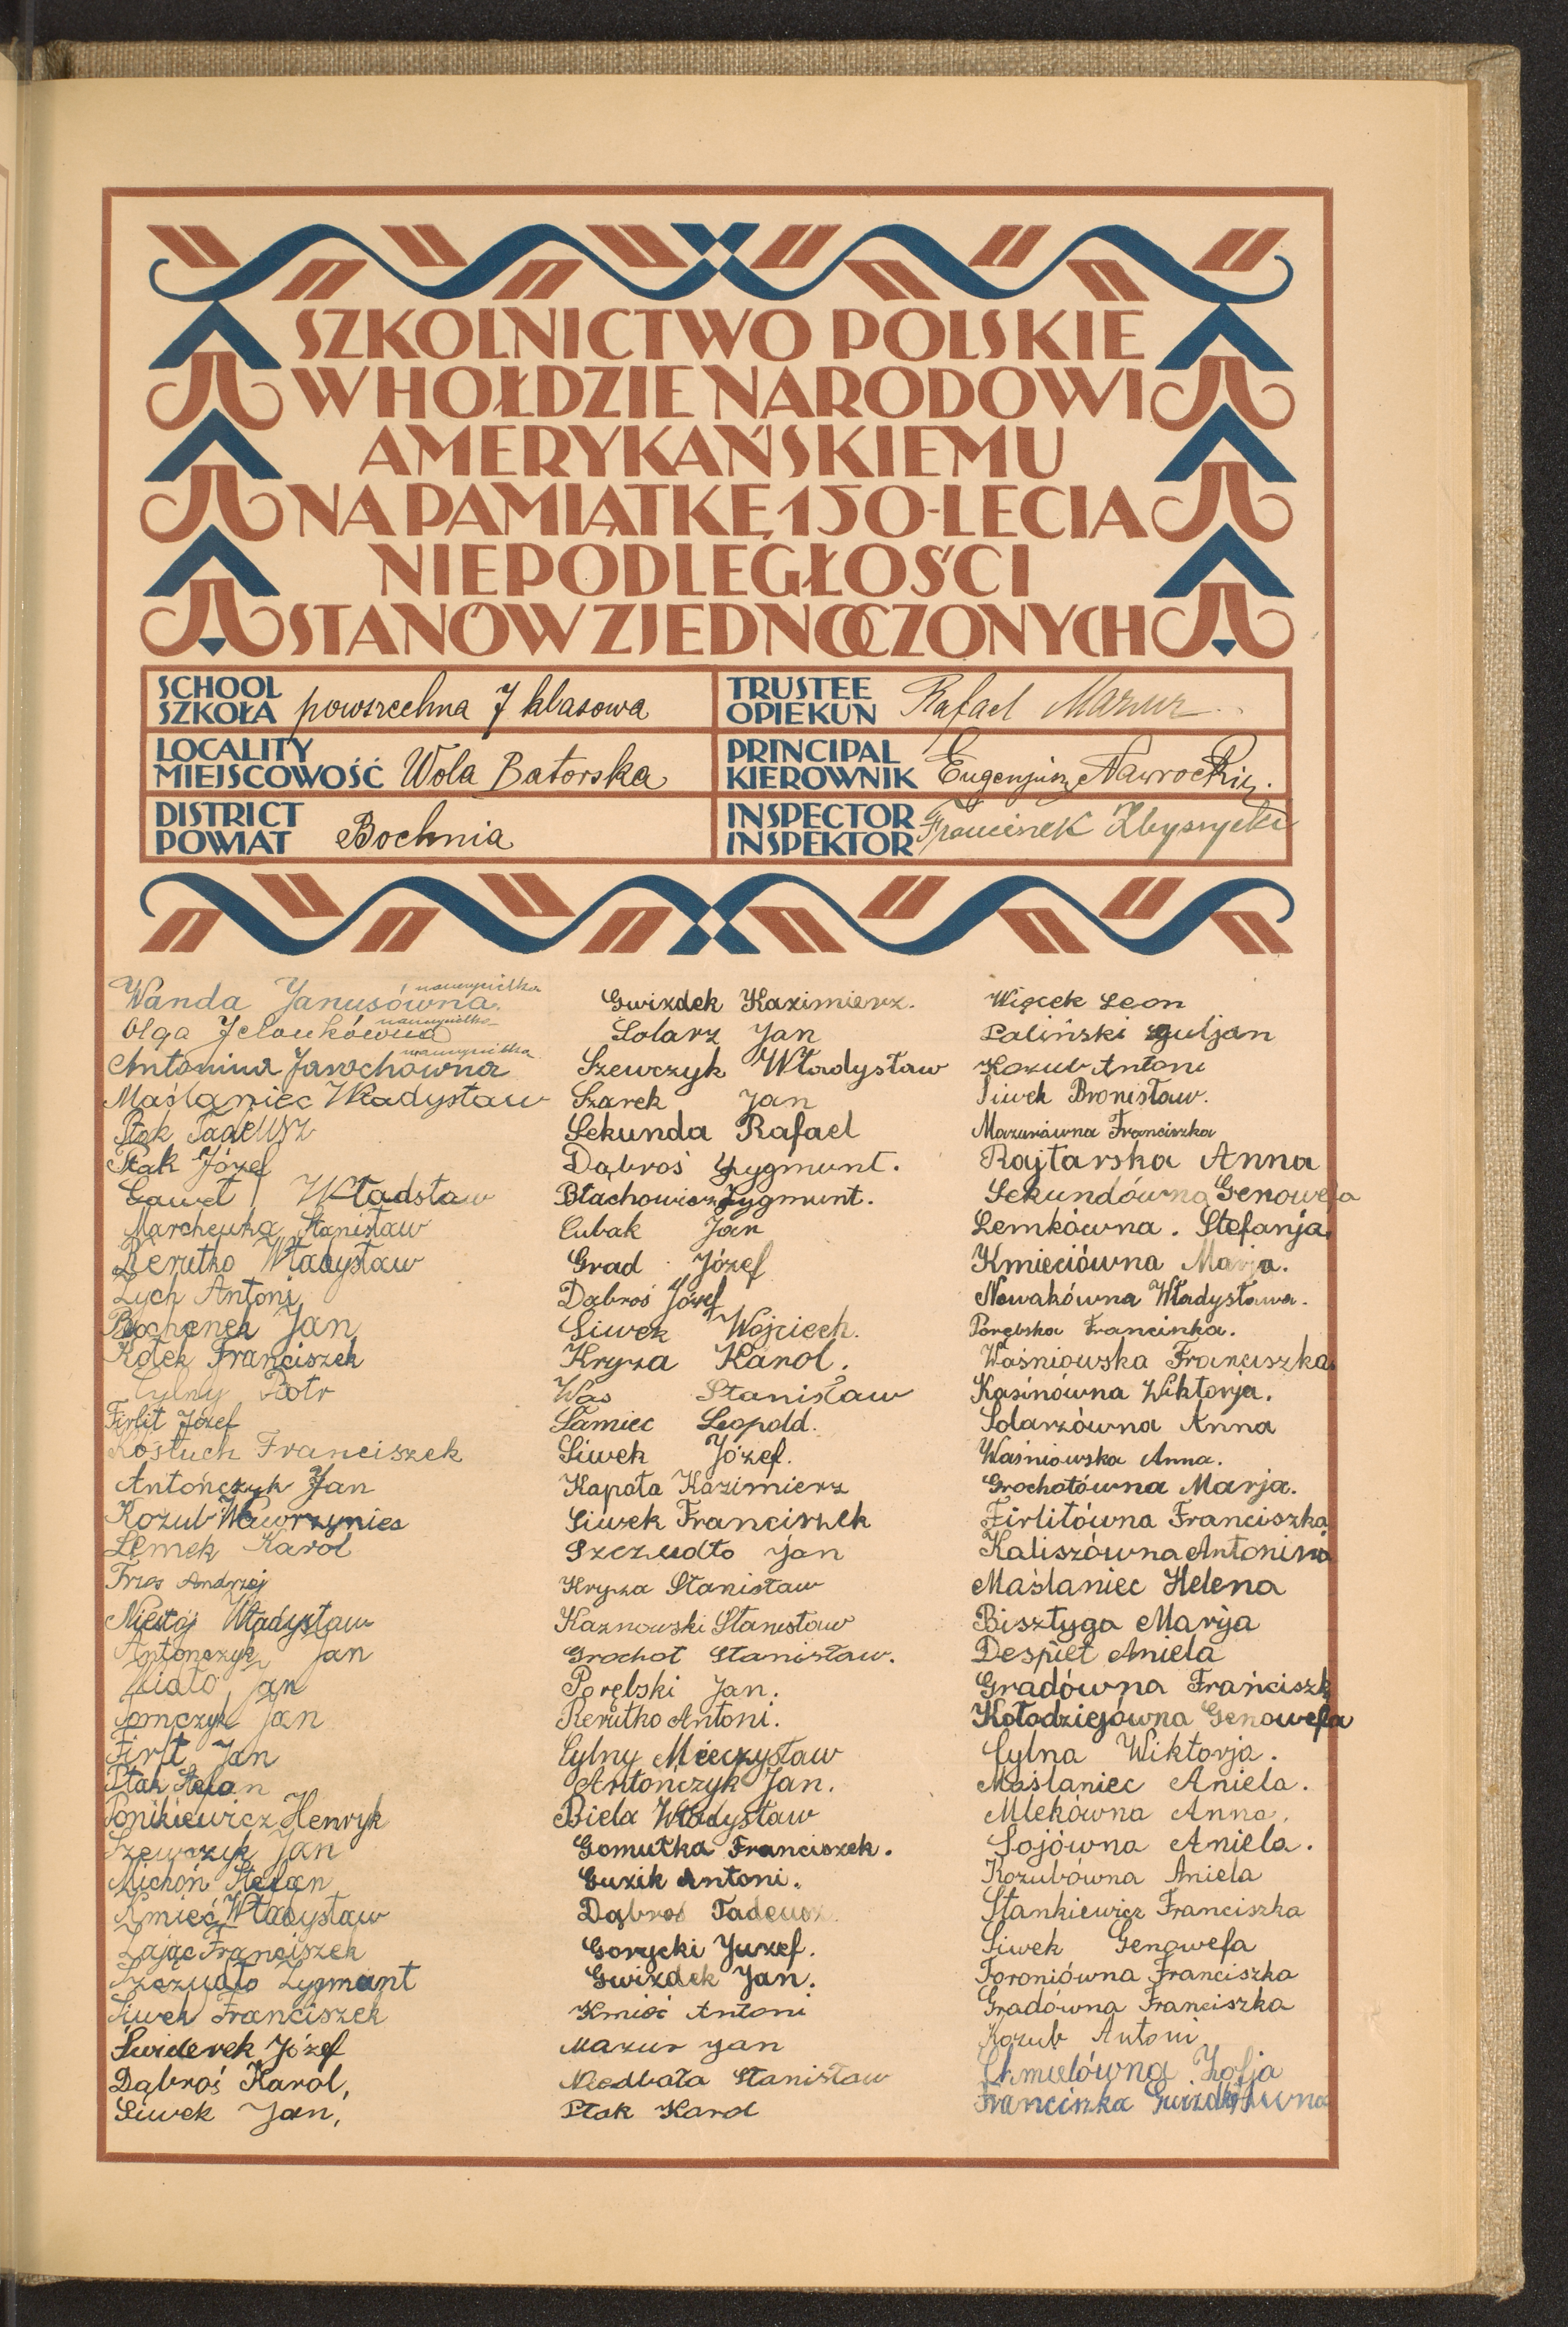 SZKOLNICTWO POLSKIE
W HOŁDZIE NARODOWI
AMERYKAŃSKIEMU
NA PAMIĄTKĘ 150-LECIA
NIEPODLEGŁOŚCI
STANÓW ZJEDNOCZONYCH
SCHOOL
SZKOŁA powszechna 7 klasowa
TRUSTEE
OPIEKUN Rafael Mazur
LOCALITY
MIEJSCOWOŚĆ Wola Batorska
PRINCIPAL
KIEROWNIK Eugenjusz Nawrocki
DISTRICT
POWIAT Bochnia
INSPECTOR
INSPEKTOR Franciszek Zbyszycki
Wanda Janusówna nauczycielka
Olga nauczycielka
Antonina Jarochówna nauczycielka
Maślaniec Władysław
Ptak Tadeusz
Ptak Józef
Gaweł Władsław
Marchewka Stanisław
Rerutko Władysław
Zych Antoni
Bochenek Jan
Kotek Franciszek
Cylny Piotr
Firlit Józef
Kostuch Franciszek
Antończyk Jan
Kozub Wawrzyniec
Lemek Karol
Trzos Andrzej
Władysław
Antończyk Jan
Jan
Tomczyk Jan
Firlit Jan
Ptak Stefan
Ponikiewicz Henryk
Szewczyk Jan
Michoń Stefan
Kmieć Władysław
Zając Franciszek
Szczudło Zygmunt
Siwek Franciszek
Świderek Józef
Dąbroś Karol,
Siwek Jan,
Gwizdek Kazimierz.
Solarz Jan
Szewczyk Władysław
Szarek Jan
Sekunda Rafael
Dąbroś Zygmunt.
Błachowicz Zygmunt.
Cubak Jan
Grad Józef
Dąbroś Józef
Siwek Wojciech.
Kryza Karol.
Was Stanisław
Samiec Leopold.
Siwek Józef.
Kapała Kazimierz
Siwek Franciszek
Szczudło Jan
Kryza Stanisław
Kaznowski Stanisław
Grochot Stanisław.
Porębski Jan.
Rerutko Antoni.
Cylny Mieczysław
Antończyk Jan.
Biela Władysław
Gomułka Franciszek.
Guzik Antoni.
Dąbroś Tadeusz.
Gorycki Juzef.
Gwizdek Jan.
Kmieć Antoni
Mazur Jan
Niedbała Stanisław
Ptak Karol
Więcek Leon
Paliński Juljan
Kozub Antoni
Siwek Bronisław.
Mazurówna Franciszka
Rajtarska Anna
Sekundówna Genowefa
Lemkówna. Stefanja.
Kmieciówna Marja.
Nowakówna Władysława.
Porębska Francinka.
Waśniowska Franciszka.
Kasinówna Wiktorja.
Solarzówna Anna
Waśniowska Anna.
Grochotówna Marja.
Firlitówna Franciszka
Kaliszówna Antonina
Maślaniec Helena
Bisztyga Marija
Despiet Aniela
Gradówna Franciszk
Kołodziejówna Genowefa
Cylna Wiktorja.
Maślaniec Aniela.
Mlekówna Anna.
Sojówna Aniela.
Kozubówna Aniela
Stankiewicz Franciszka
Siwek Genowefa
Toroniówna Franciszka
Gradówna Franciszka
Kozub Antoni
Chmielówna Zofja
Franciszka